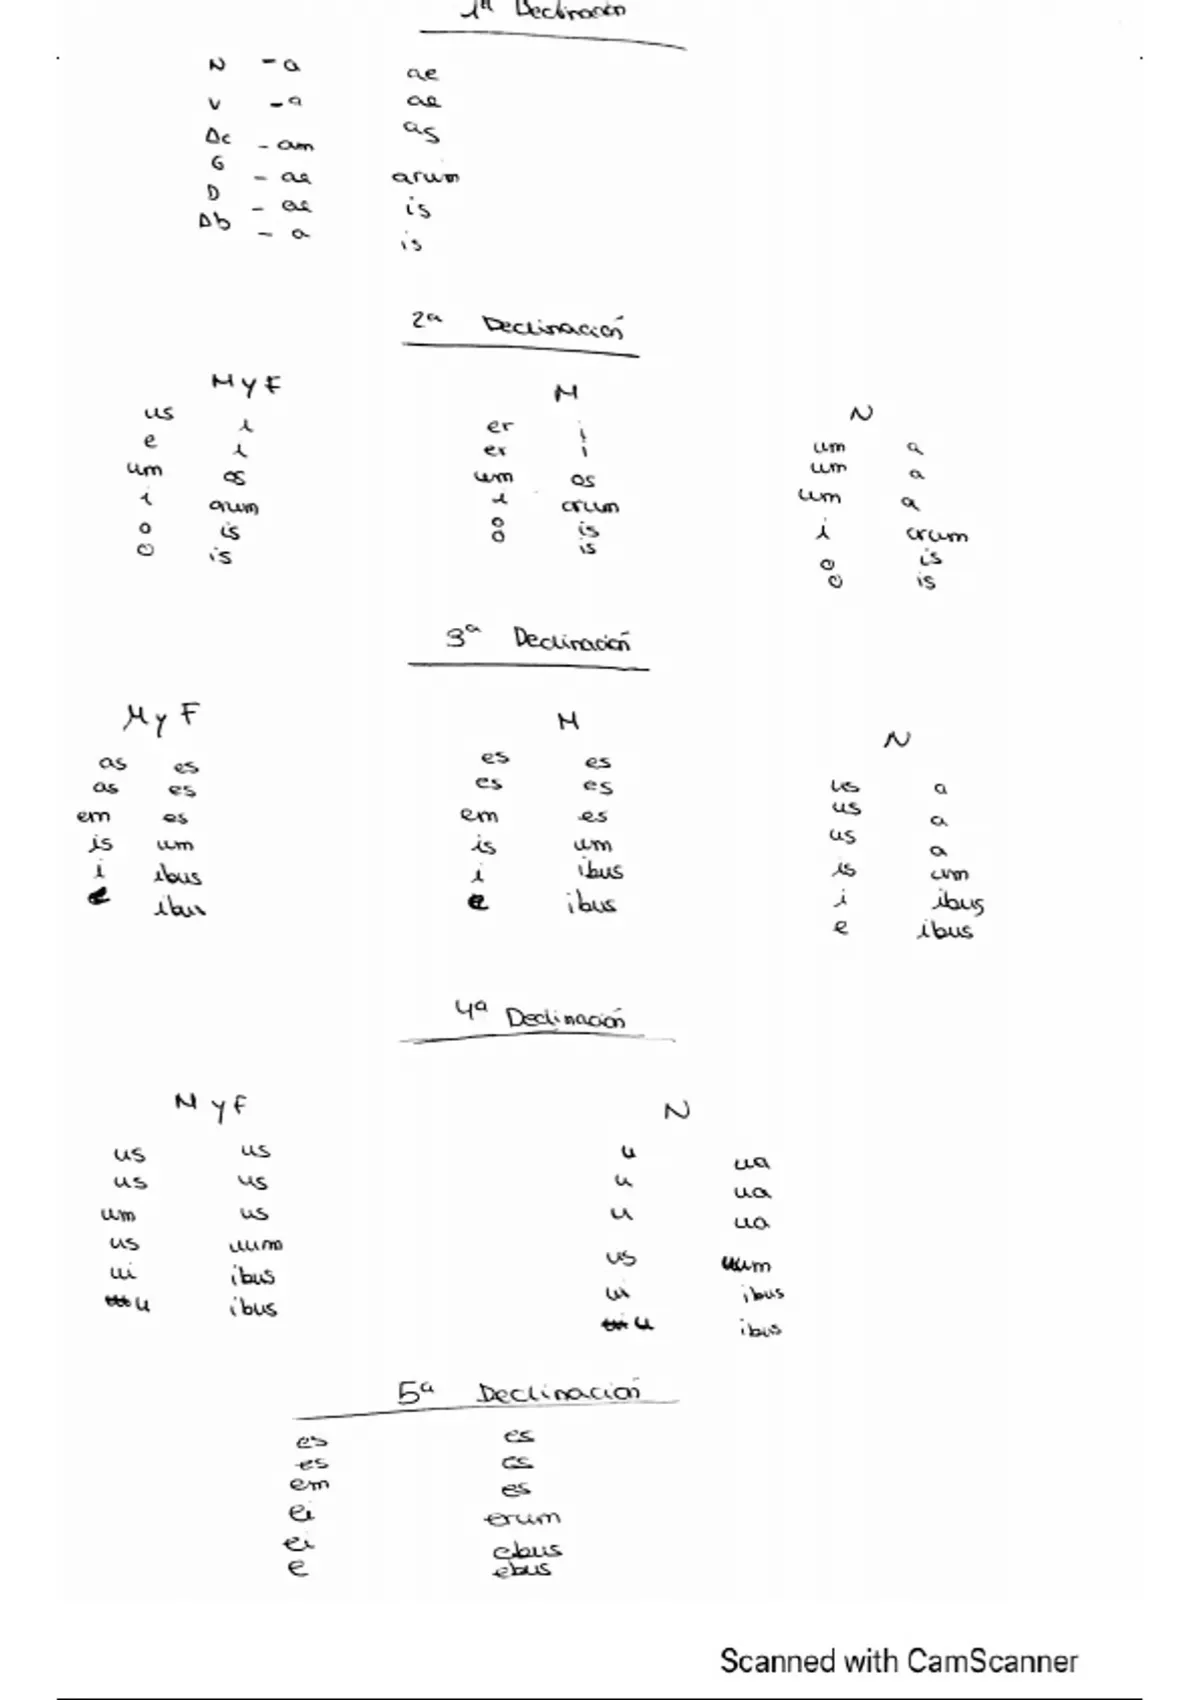 1ª Declinación
N -a ae
V -a ae
Ac -am as
G -ae arum
D -ae is
Ab -a is
2ª Declinación
M y F M N
us i er i um a
e i er i um a
um os um os um a
i orum i orum i orum
o is o is o is
o is o is o is
3ª Declinación
M y F M N
as es es es us a
as es es es us a
em es em es us a
is um is um is um
i ibus i ibus i ibus
e ibus e ibus e ibus
4ª Declinación
M y F N
us us u ua
us us u ua
um us u ua
us uum us uum
ui ibus ui ibus
u ibus u ibus
5ª Declinación
es es
es es
em es
ei erum
ei ebus
e ebus
Scanned with CamScanner